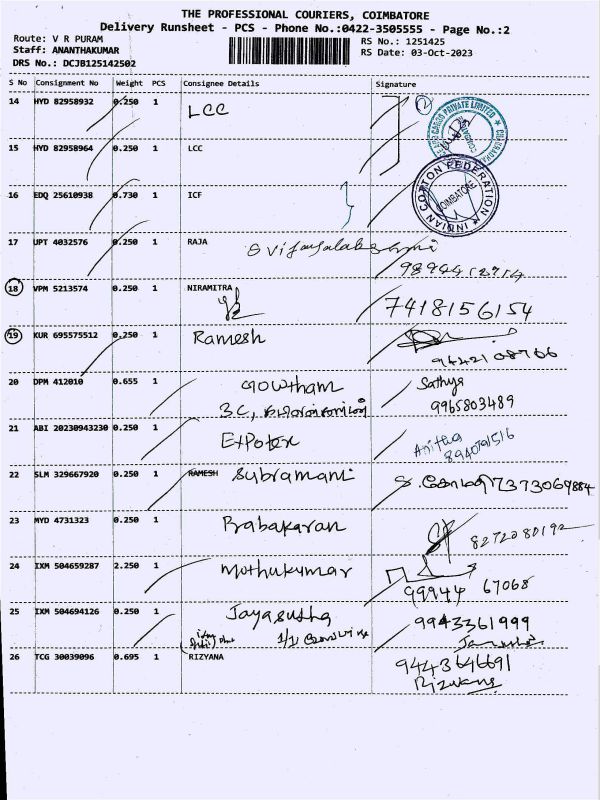 THE PROFESSIONAL COURIERS, COIMBATORE
Delivery Runsheet - PCS - Phone No.:0422-3505555 - Page No.:2
Route: V R PURAM
RS No.: 1251425
Staff: ANANTHAKUMAR
RS Date: 03-Oct-2023
DRS No.: DCJB125142502
S No Consignment No Weight PCS Consignee Details Signature
14 HYD 82958932 0.250 1 LCC 2
15 HYD 82958964 0.250 1 LCC
16 EDQ 25610938 0.730 1 ICF
INDIAN COTTON FEDERATION COIMBATORE
17 UPT 4032576 0.250 1 RAJA
18 VPM 5213574 0.250 1 NIRAMITRA 7418156154
19 KUR 695575512 0.250 1 Ramesh
20 DPM 412010 0.655 1 Gowtham Sathya
9965803489
21 ABI 20230943230 0.250 1 Anitha
22 SLM 329667920 0.250 1 RAMESH Subramani 7373069884
23 MYD 4731323 0.250 1 Babakaran 8272080192
24 IXM 504659287 2.250 1 Mothukumar
99944 67068
25 IXM 504694126 0.250 1 Jayasudha 9943361999
26 TCG 30039096 0.695 1 RIZYANA 9443646691
Rizwana